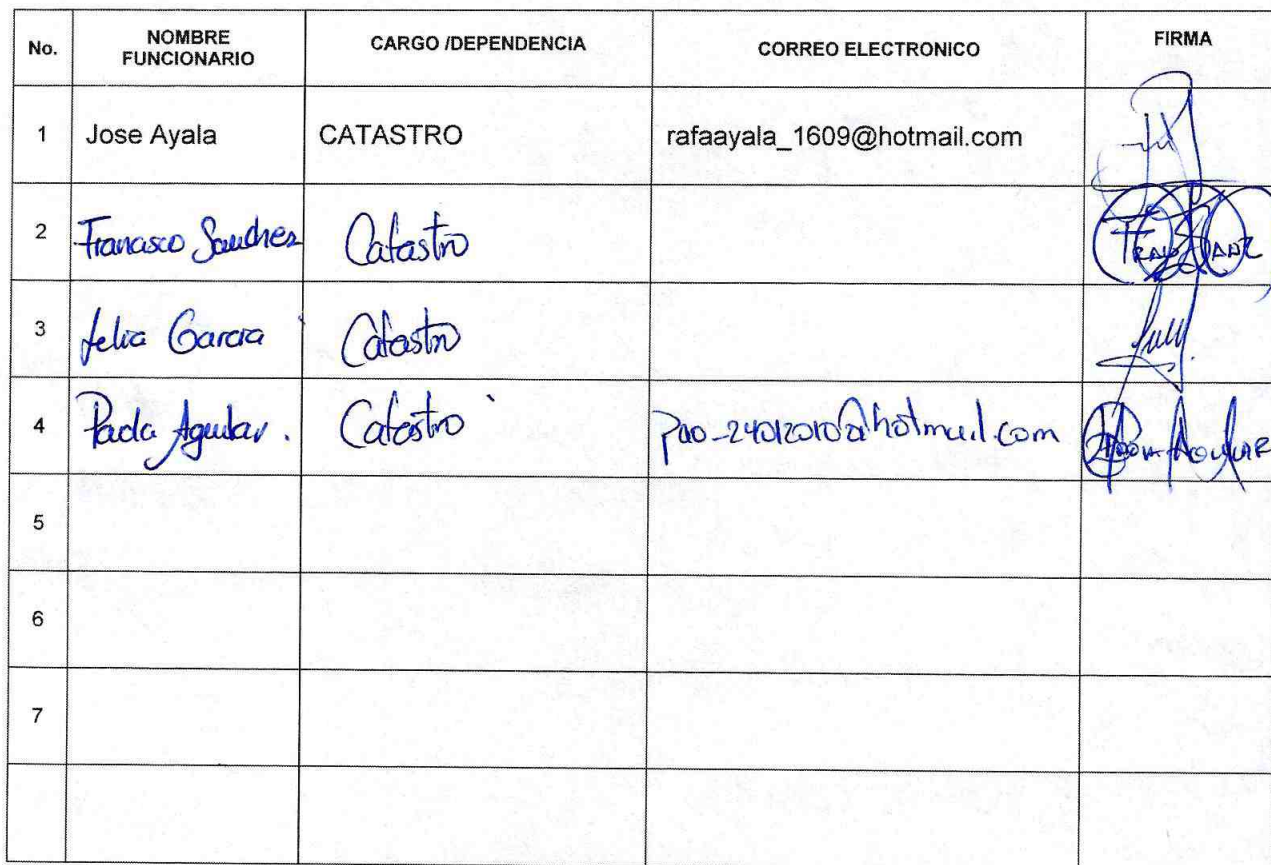 No. NOMBRE FUNCIONARIO CARGO /DEPENDENCIA CORREO ELECTRONICO FIRMA
1 Jose Ayala CATASTRO rafaayala_1609@hotmail.com
2 Francisco Sanchez Catastro
3 Lelia Garcia Catastro
4 Paola Aguilar. Catastro pao_24012010@hotmail.com Paola Aguilar
5
6
7